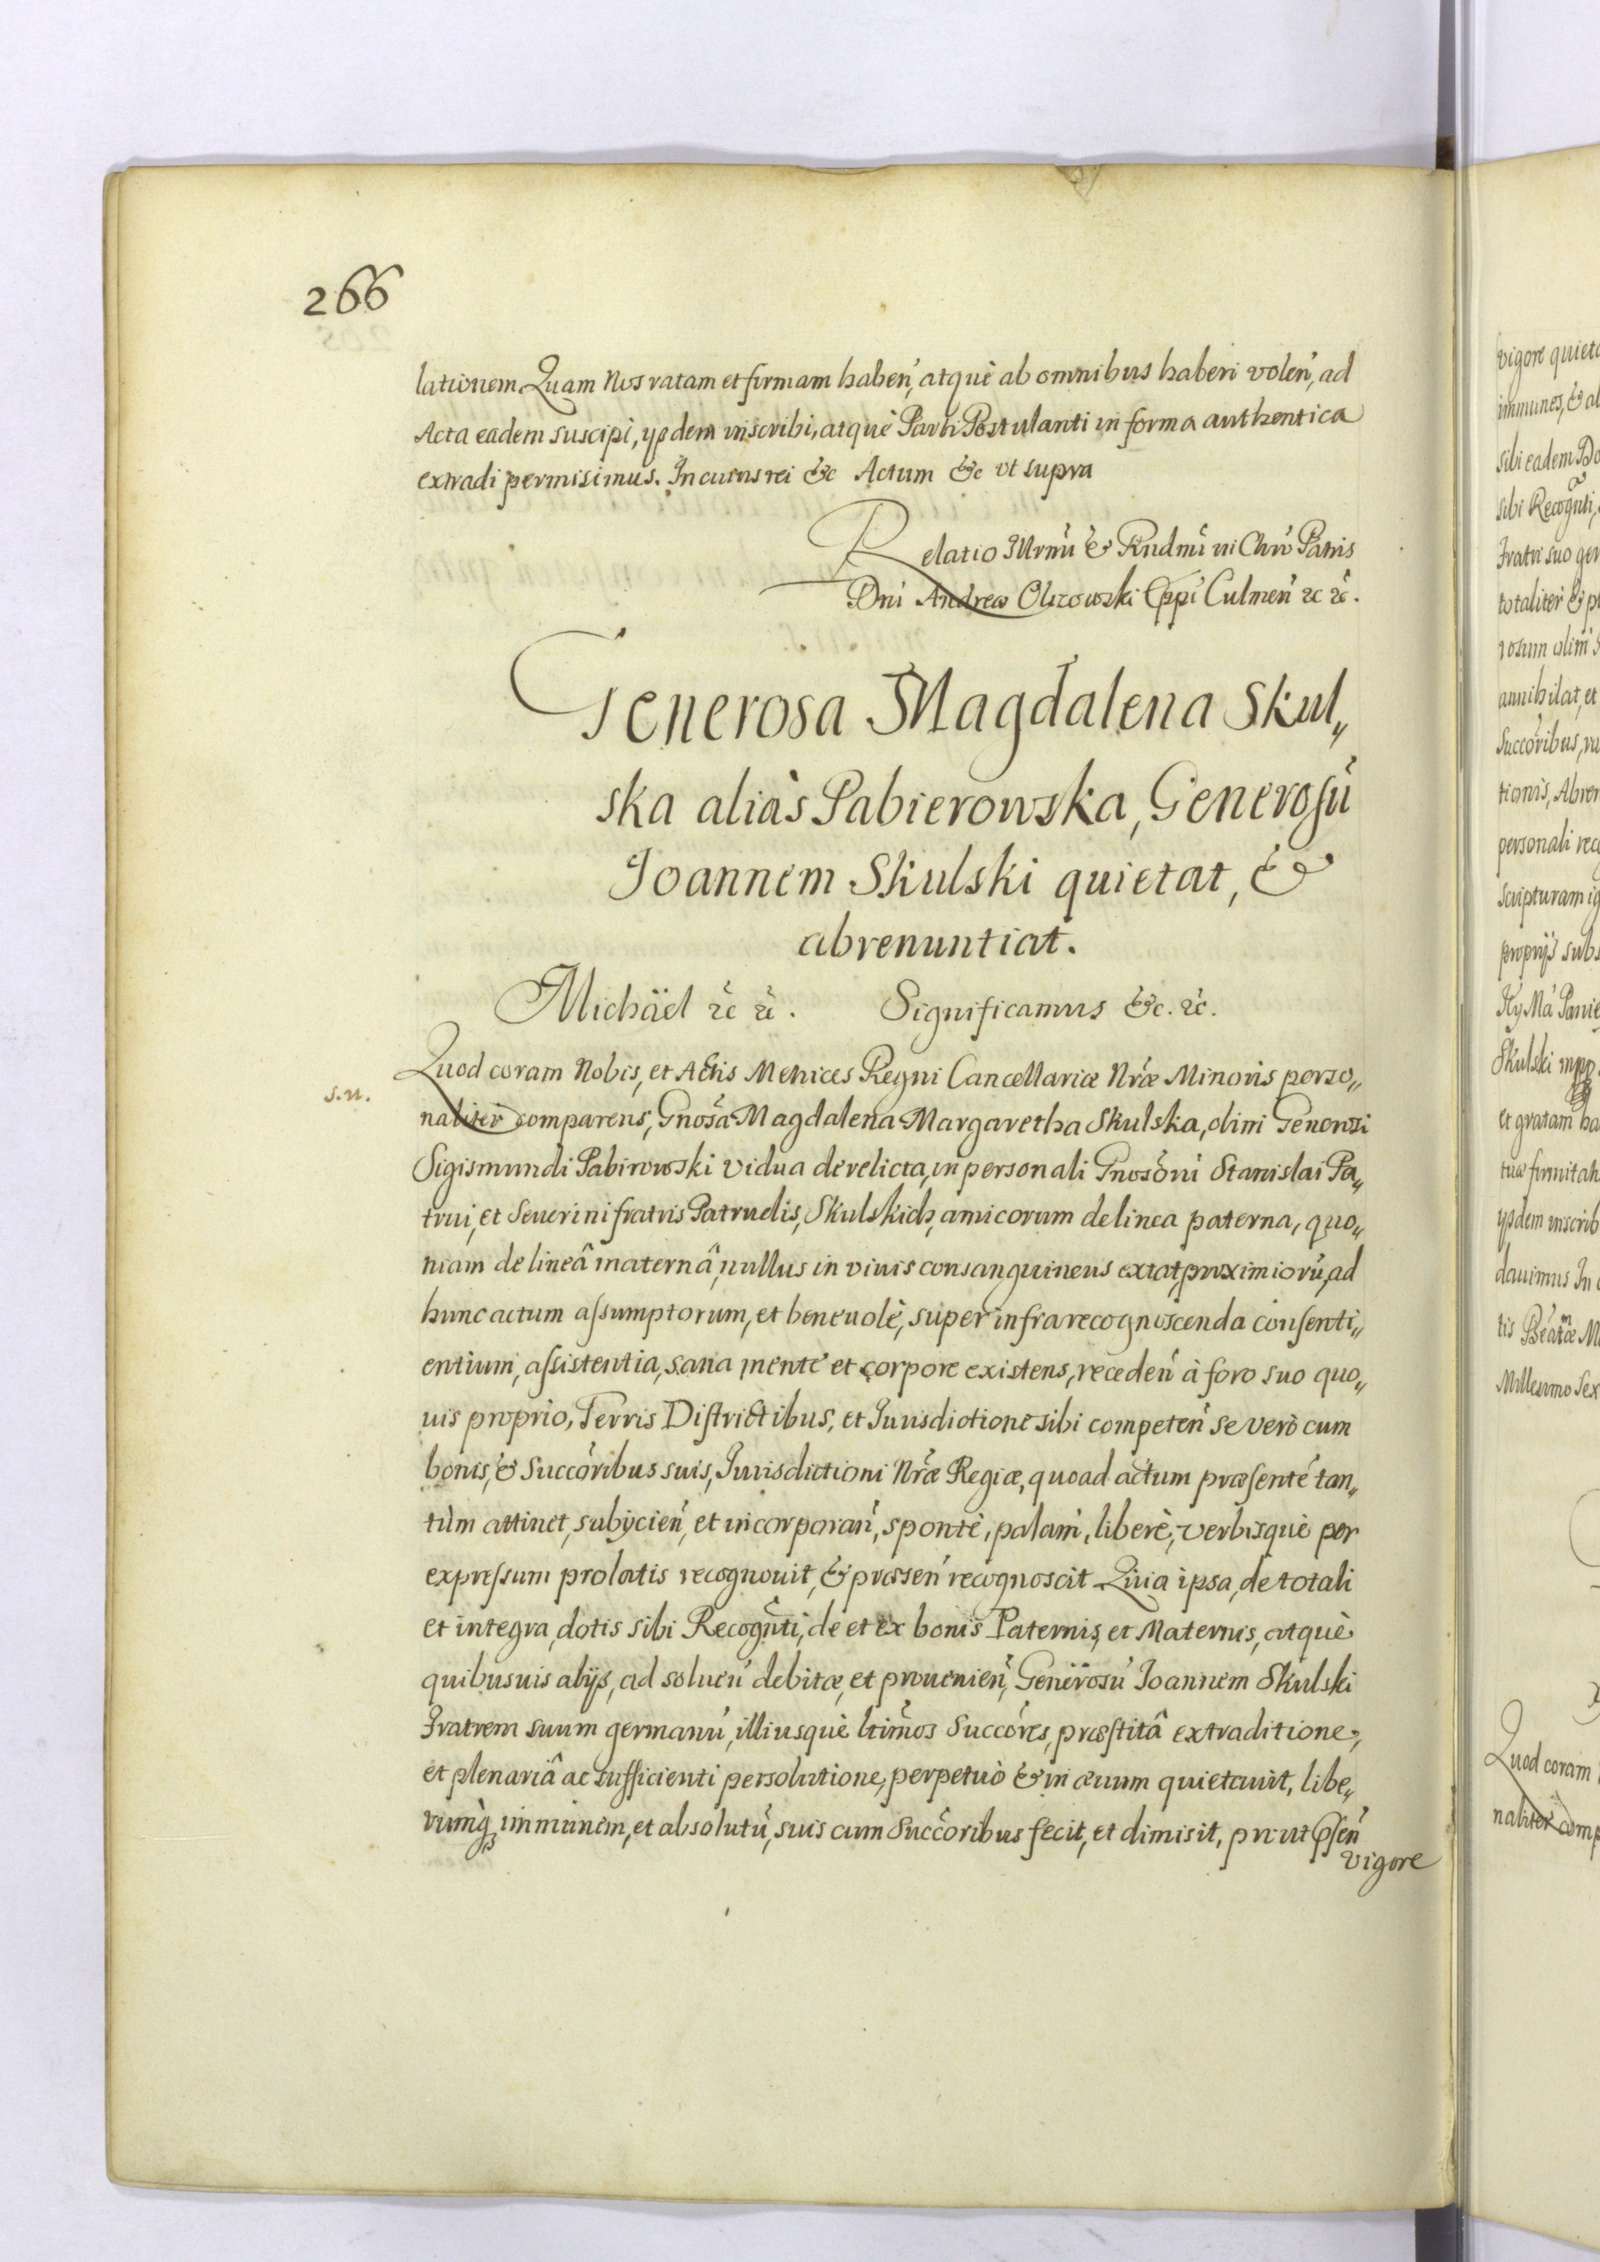 266
lationem. Quam Nos ratam et firmam haben̄, atquè ab omnibus haberi volen̄, ad
Acta eadem suscipi, ysdem inscribi, atquè Parti Postulanti in forma authentica
extradi permisimus. In cuius rei &c Actum &c vt supra
Relatio Illrmi & Rndmi in Chro Patris
Dni Andreæ Olszowski Eppi Culmen̄ &c &c.
Generosa Magdalena Skul„
ska aliàs Pabierowska, Generosū
Joannem Skulski quietat, &
abrenuntiat.
Michäel &c &c. Significamus &c. &c.
Quod coram Nobis, et Actis Metrices Regni Cancellariæ Nræ Minoris perso„
s.n.
naliter comparens, Gnosa Magdalena Margaretha Skulska, olim Generosi
Sigismundi Pabirowski vidua derelicta, in personali Gnosorū Stanislai Pa„
trui, et Seuerini fratris Patruelis, Skulskich, amicorum de linea paterna, quo„
niam de lineâ maternâ, nullus in viuis consanguineus extat proximiorū, ad
hunc actum assumptorum, et beneuolè, super infrarecognoscenda consenti„
entium, assistentia, sana mente et corpore existens, receden̄ à foro suo quo„
uis proprio, Terris Districtibus, et Jurisdictione sibi competen̄ se verò cum
bonis, & Succoribus suis, Jurisdictioni Nræ Regiæ, quoad actum præsentē tan„
tùm attinet, subijcien̄, et incorporan̄, spontè, palam, liberè, verbisquè per
expressum prolatis recognouit, & præsen̄ recognoscit Quia ipsa, de totali
et integra, dotis sibi Recognti, de et ex bonis Paternis, et Maternis, atquè
quibusuis alijs, ad soluen̄ debitæ, et prouenien̄, Generosū Joannem Skulski
Fratrem suum germanū, illiusquè ltimos Succores, præstitâ extraditione,
et plenariâ ac sufficienti persolutione, perpetuò & in æuum quietauit, libe„
rumq̀, immunem, et absolutū, suis cum Succoribus fecit, et dimisit, prout psen̄
vigore